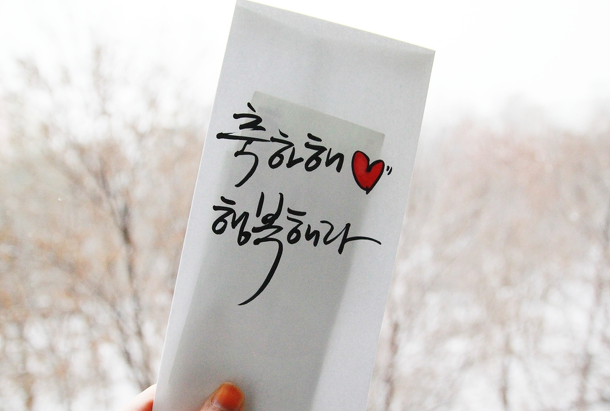 축하해
행복해라